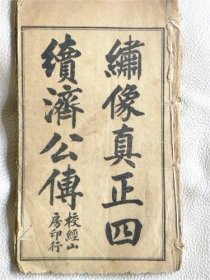 繡像真正四
續濟公傳
校經山
房印行